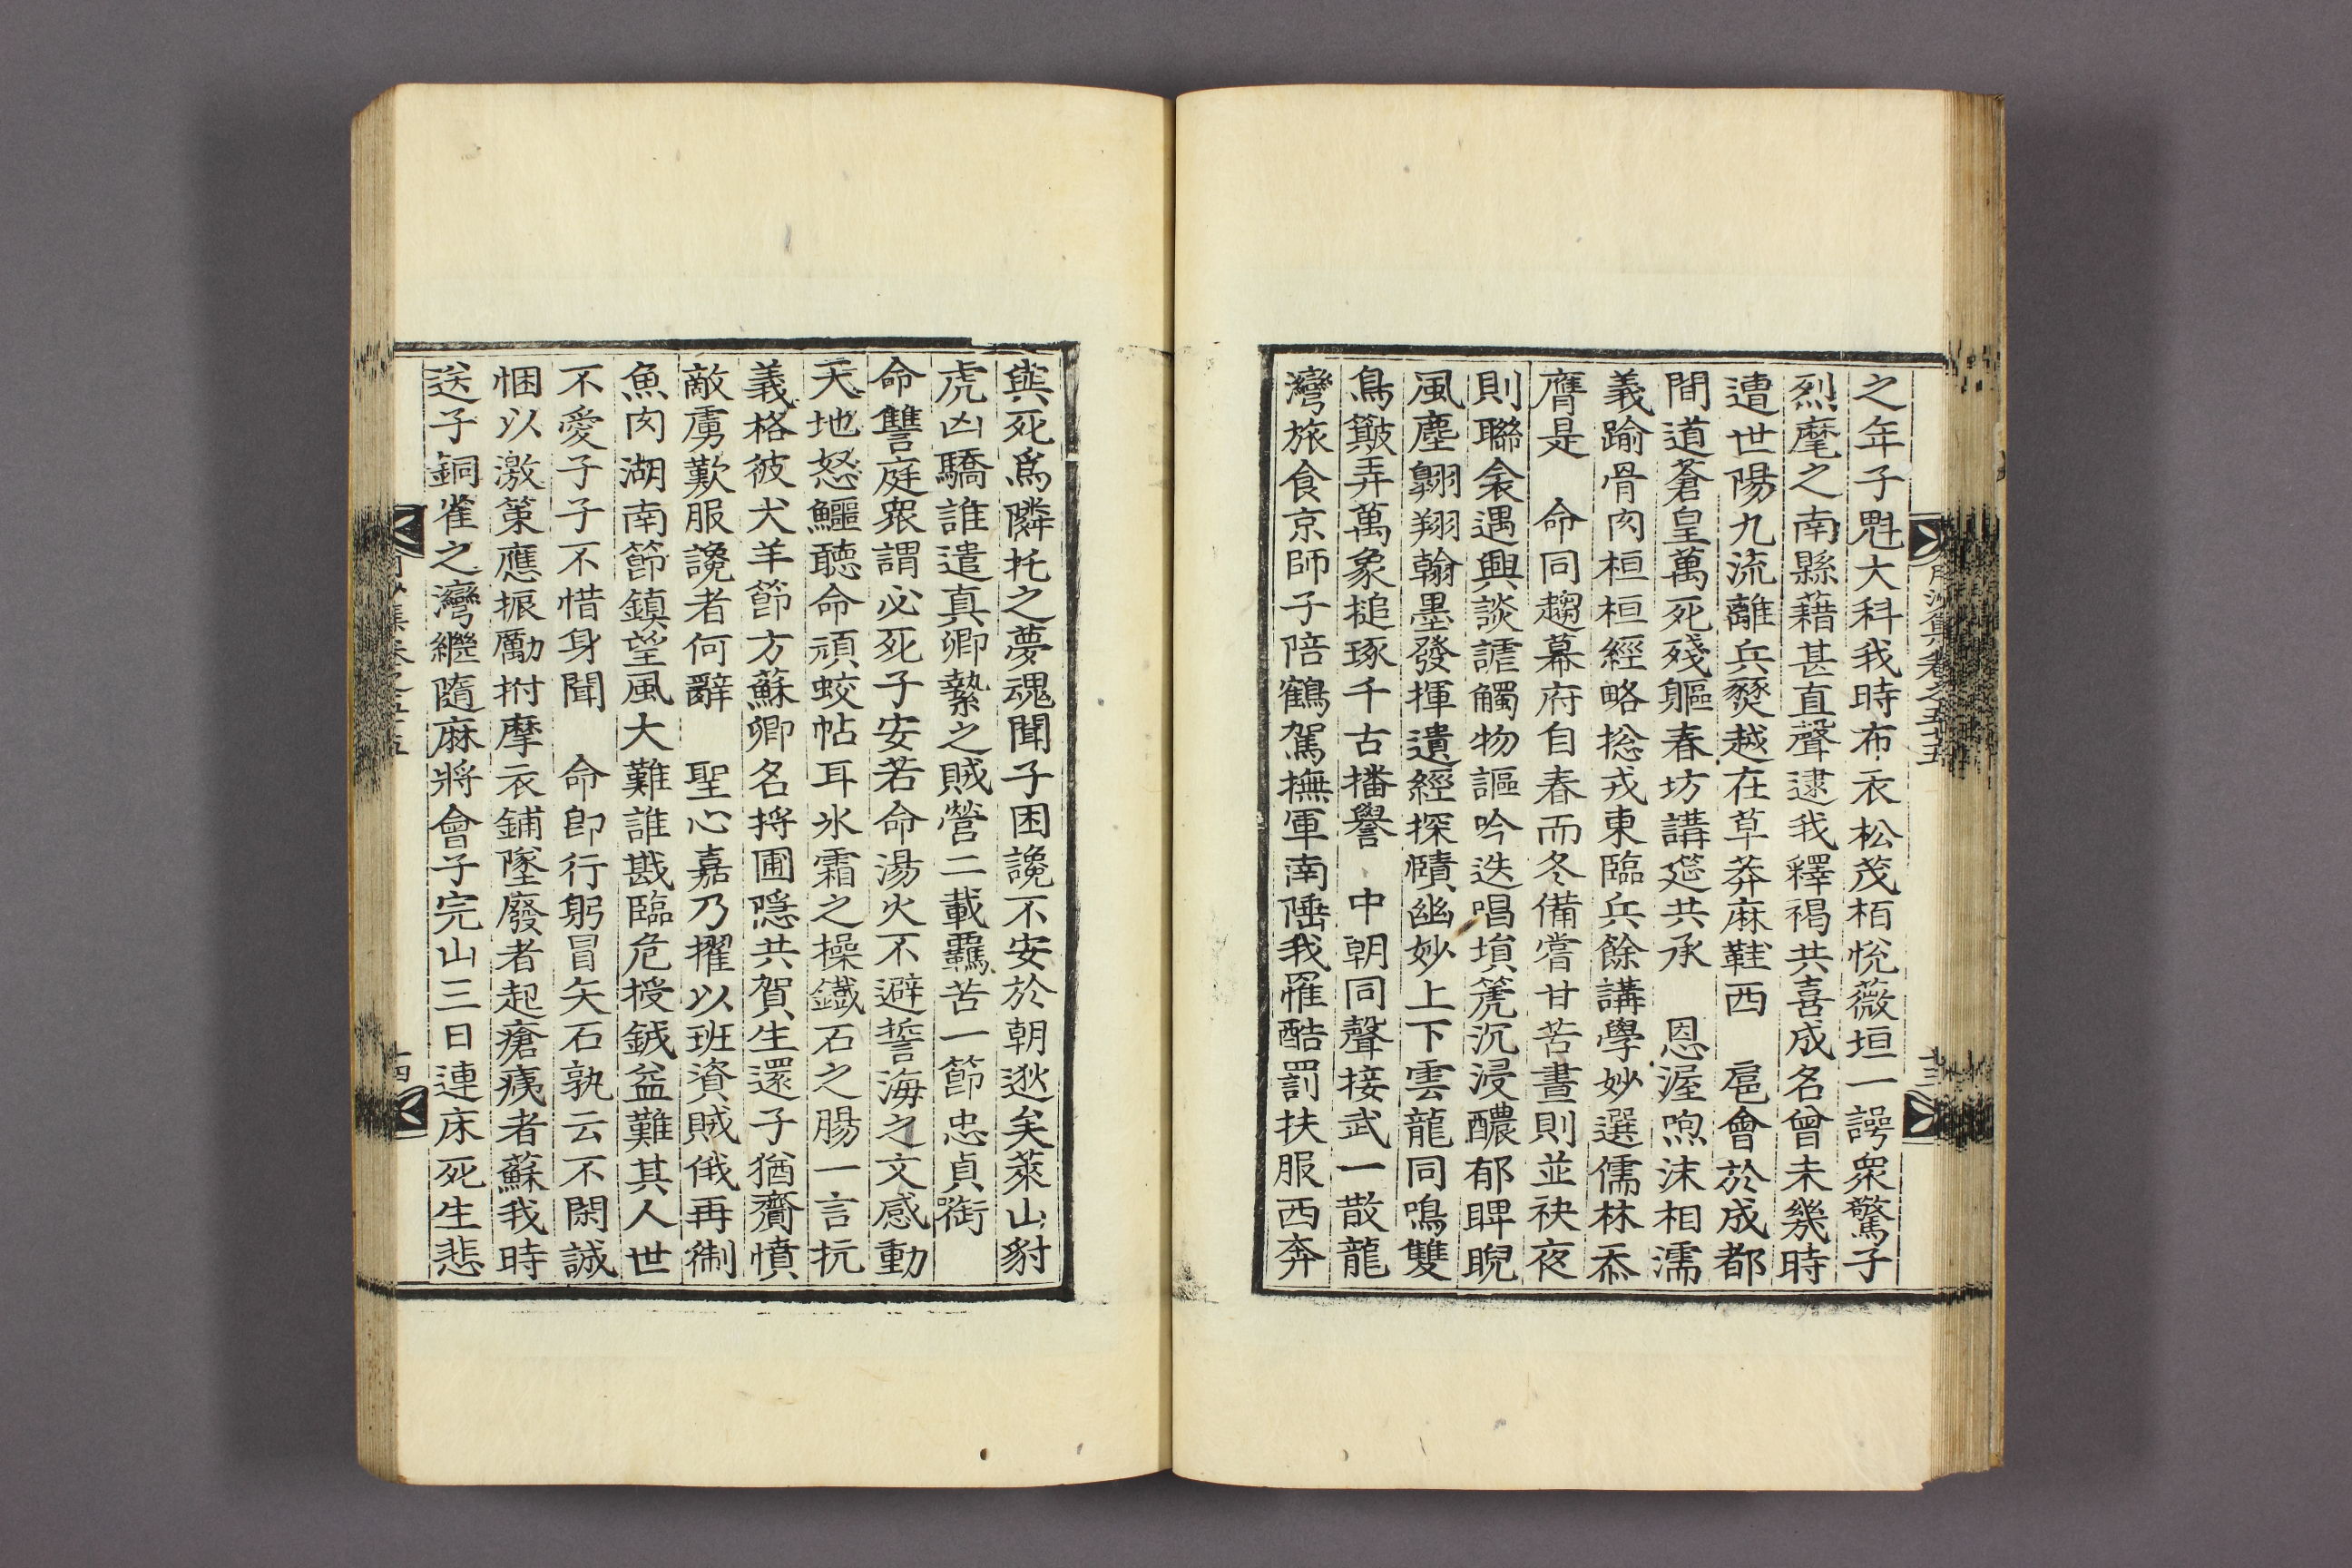 月沙集卷之五十五
十三
之年子魁大科我時布衣松茂栢悅薇垣一諤衆驚子
烈麾之南縣藉甚直聲逮我釋褐共喜成名曾未幾時
遭世陽九流離兵燹越在草莽麻鞋西 扈會於成都
間道蒼皇萬死殘軀春坊講筵共承 恩渥喣沫相濡
義踰骨肉桓桓經略捴戎東臨兵餘講學妙選儒林忝
膺是 命同趨幕府自春而冬備嘗甘苦晝則並袂夜
則聯衾遇興談謔觸物謳吟迭唱塤篪沉浸醲郁睥睨
風塵翱翔翰墨發揮遺經探賾幽妙上下雲龍同鳴雙
鳥簸弄萬象搥琢千古播譽 中朝同聲接武一散龍
灣旅食京師子陪鶴駕撫軍南陲我罹酷罰扶服西奔
與死爲隣托之夢魂聞子困讒不安於朝逖矣萊山豺
虎凶驕誰遣真卿縶之賊營二載羈苦一節忠貞銜
命讐庭衆謂必死子安若命湯火不避誓海之文感動
天地怒鱷聽命頑蛟帖耳氷霜之操鐵石之腸一言抗
義格彼犬羊節方蘇卿名捋圃隱共賀生還子猶齎憤
敵虜歎服讒者何辭 聖心嘉乃擢以班資賊俄再徶
魚肉湖南節鎮望風大難誰戡臨危授鉞益難其人世
不愛子子不惜身聞 命卽行躬冒矢石孰云不閑誠
悃以激策應振勵拊摩衣鋪墜廢者起瘡痍者蘇我時
送子銅雀之灣繼隨麻將會子完山三日連床死生悲
月沙集卷之五十五
十四